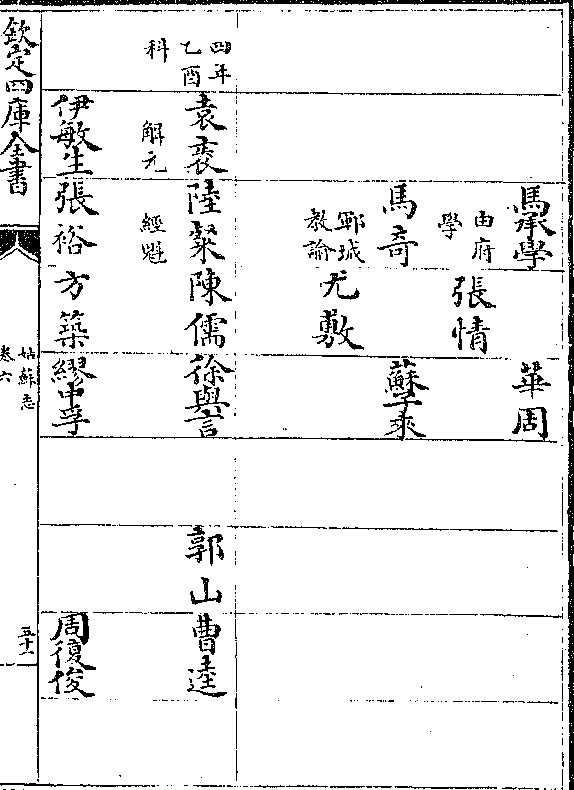 馬承學
華周
由府學
張情
馬奇
蘇
鄆城教諭
尤敷
四年乙酉科
袁袠
陸粲
陳儒
徐與言
郭山
曹逵
解元
經魁
伊敏生
張裕
方築
繆中孚
周復俊
欽定四庫全書
姑蘇志
卷六